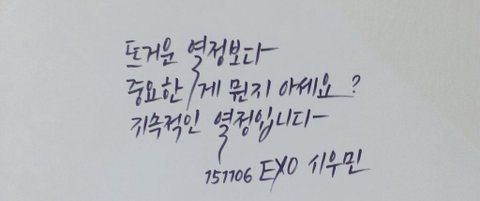 뜨거운 열정보다
중요한 게 뭔지 아세요?
지속적인 열정입니다
151106 EXO 시우민